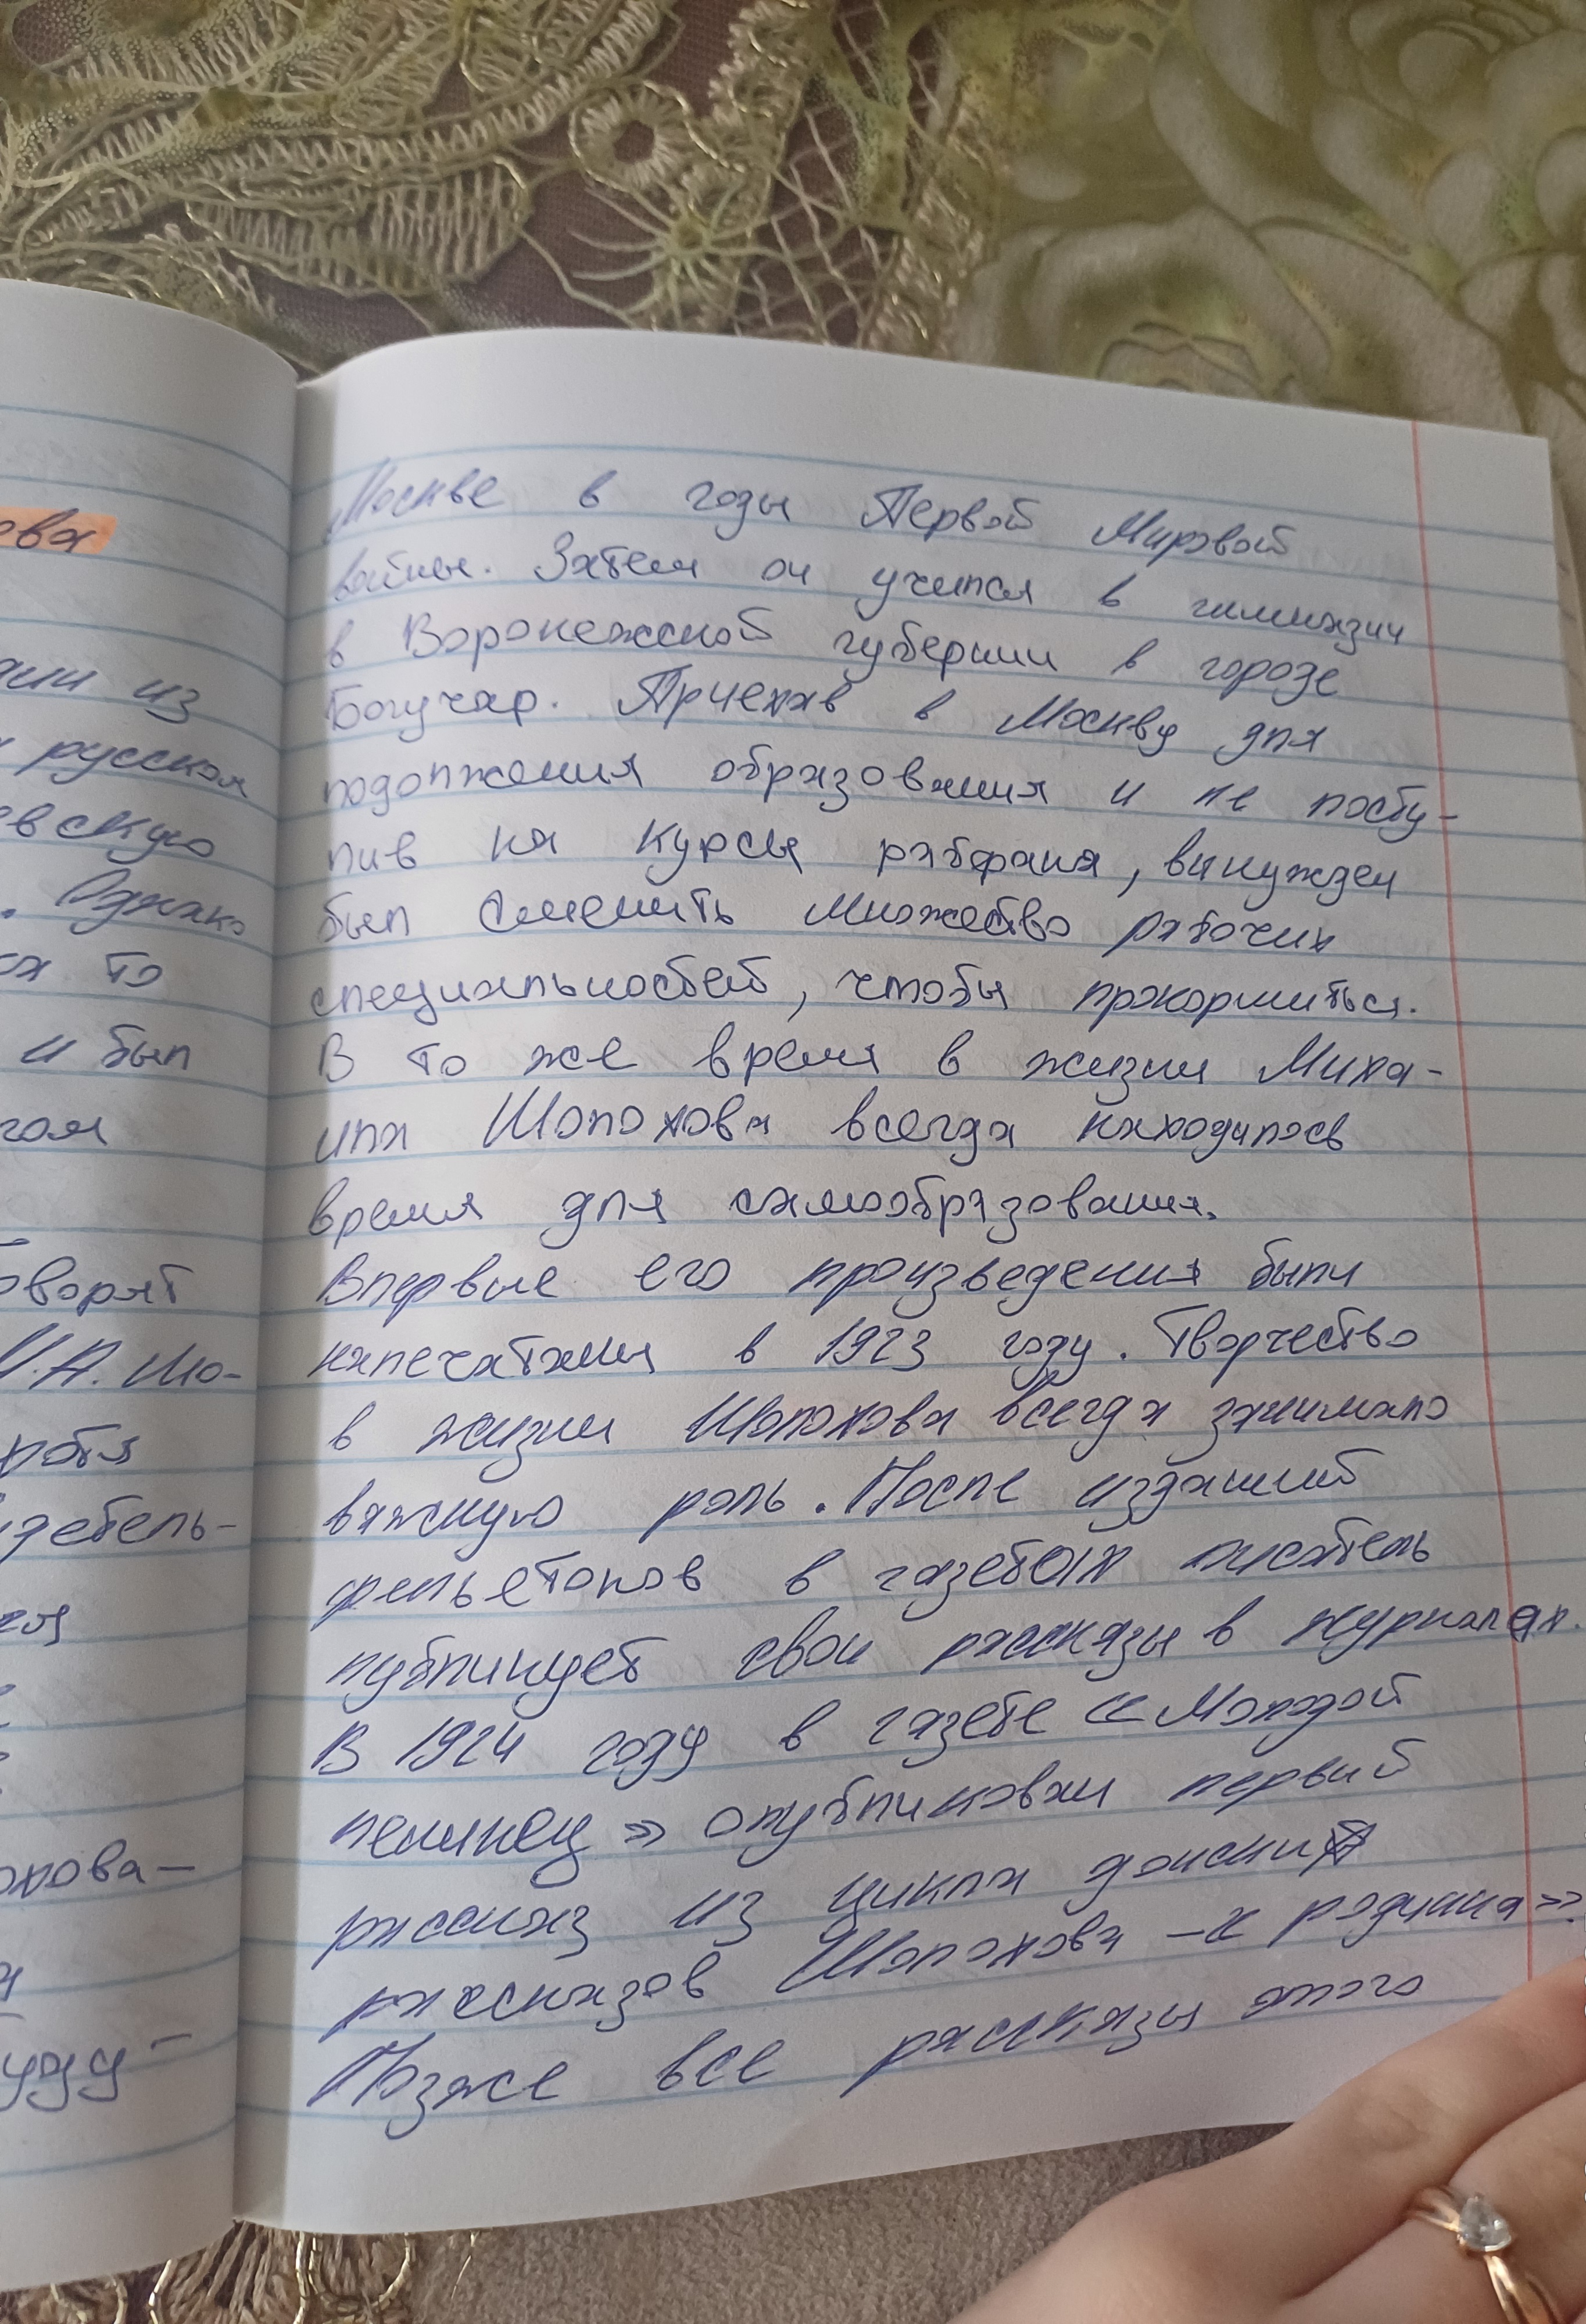 ева
ии из
русская
евскую
. Однако
ся то
и был
гом
оворят
М.А. Шо-
хотя
дебель-
охова-
Москве в годы Первой Мировой
войны. Затем он учился в гимназии
в Воронежской губернии в городе
Богучар. Приехав в Москву для
подолжения образования и не посту-
пив на курсы рабфака, вынужден
был сменить множество рабочих
специальностей, чтобы прокормиться.
В то же время в жизни Миха-
ила Шолохова всегда находилось
время для самообразования.
Впервые его произведения были
напечатаны в 1923 году. Творчество
в жизни Шолохова всегда занимало
важную роль. После изданий
фельетонов в газетах писатель
публикует свои рассказы в журналах.
В 1924 году в газете «Молодой
ленинец» опубликован первый
рассказ из цикла донских
рассказов Шолохова – « родинка».
Позже все рассказы этого